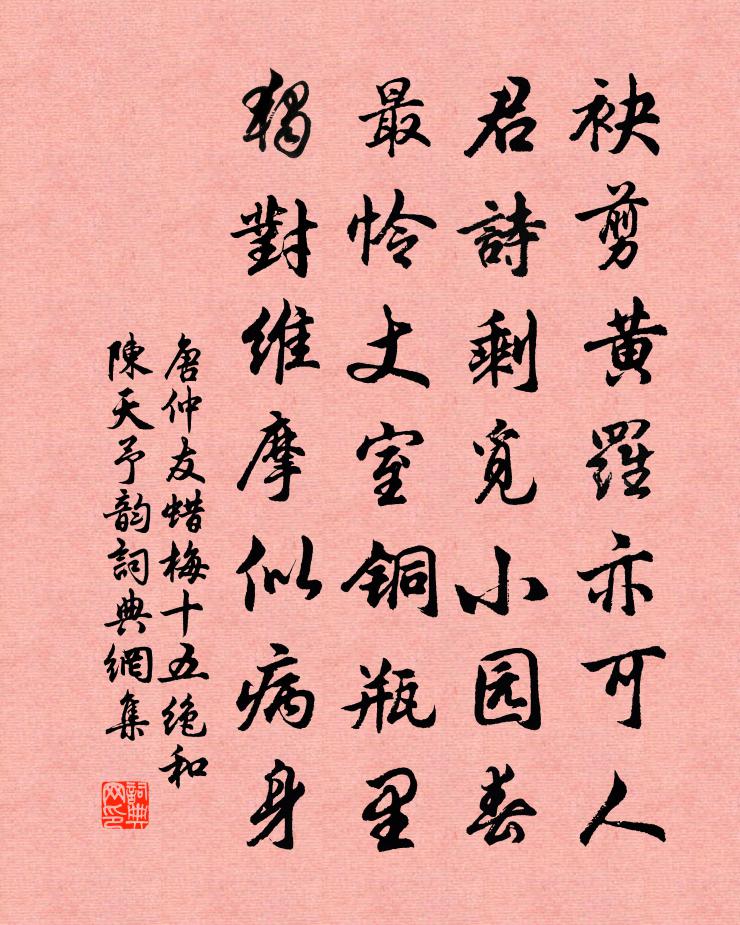 袂剪黄羅亦可人
君詩剩覓小园春
最怜丈室铜瓶里
獨對維摩似病身
唐仲友蜡梅十五绝和
陳天予韵詞典網集
詞典
网印